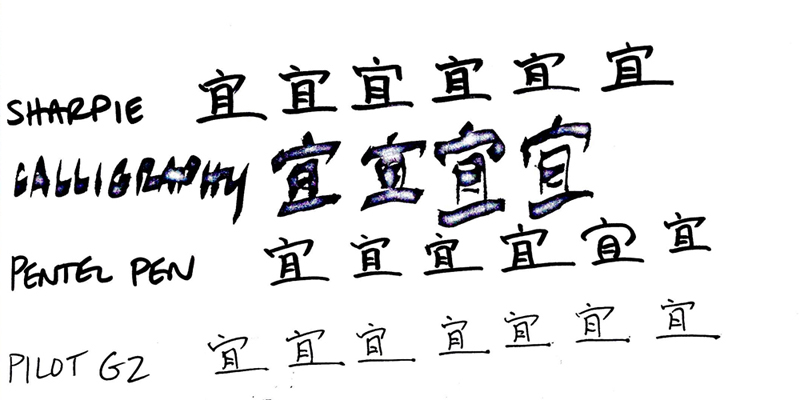 SHARPIE 宜 宜 宜 宜 宜 宜
CALLIGRAPHY 宜 宜 宜 宜
PENTEL PEN 宜 宜 宜 宜 宜 宜
PILOT G2 宜 宜 宜 宜 宜 宜 宜